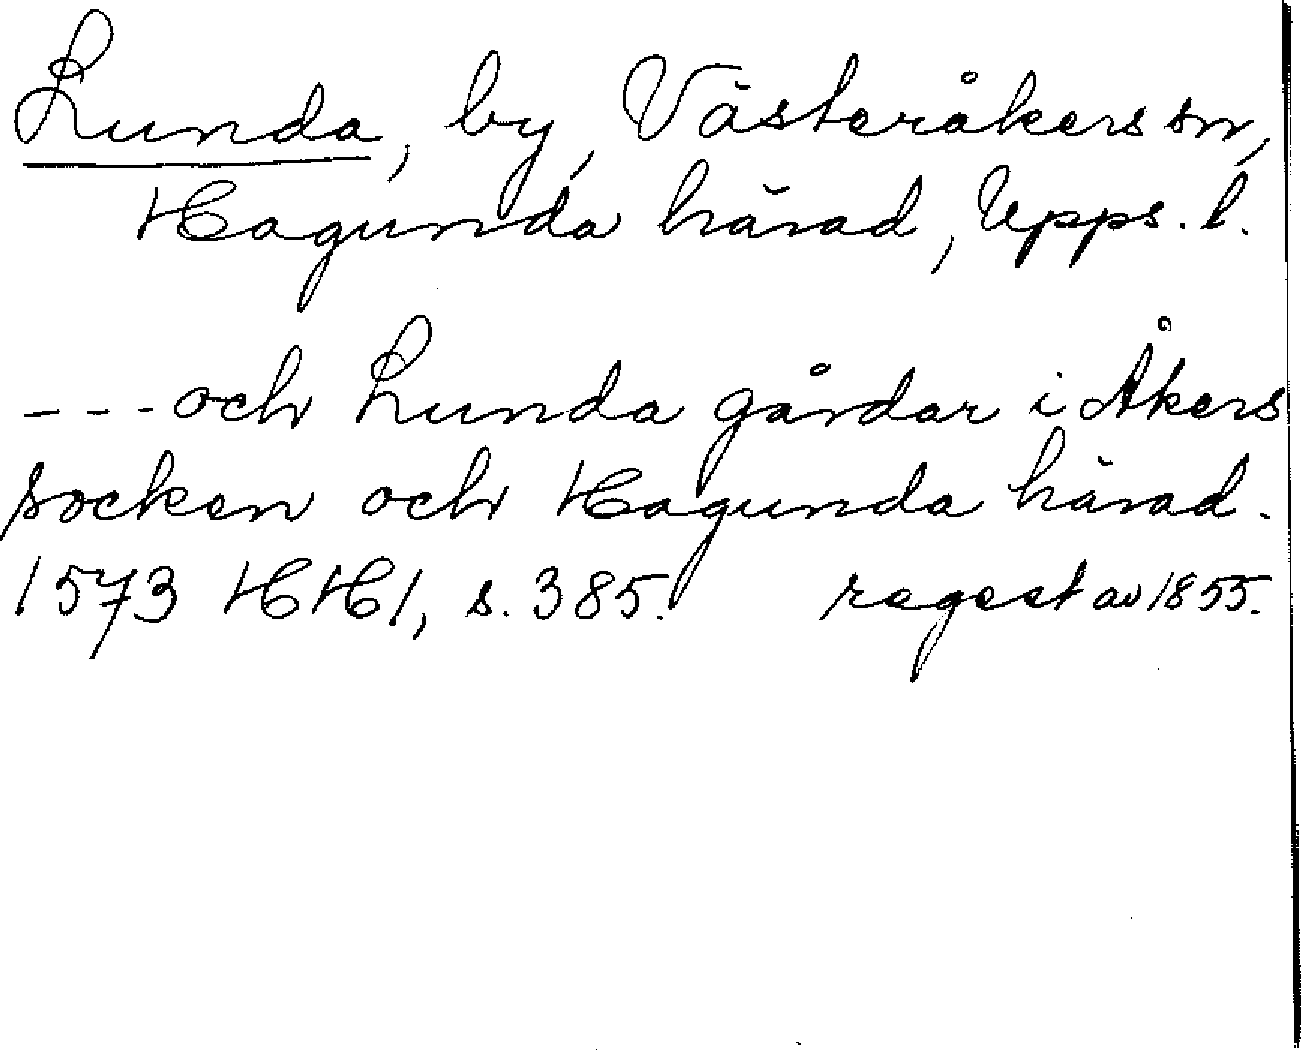 Lunda, by, Västeråkers sn,
Hagunda härad, Upps. l.
--- och Lunda gårdar i Åkers
socken och Hagunda härad.
1573 HH1, s. 385. regest av 1855.